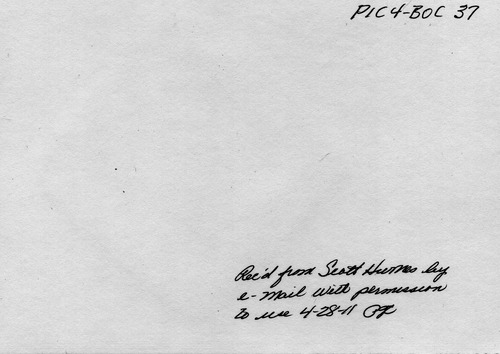 PIC4-BOC 37
Rec'd from Scott Humes by
e-mail with permission
to use 4-28-11